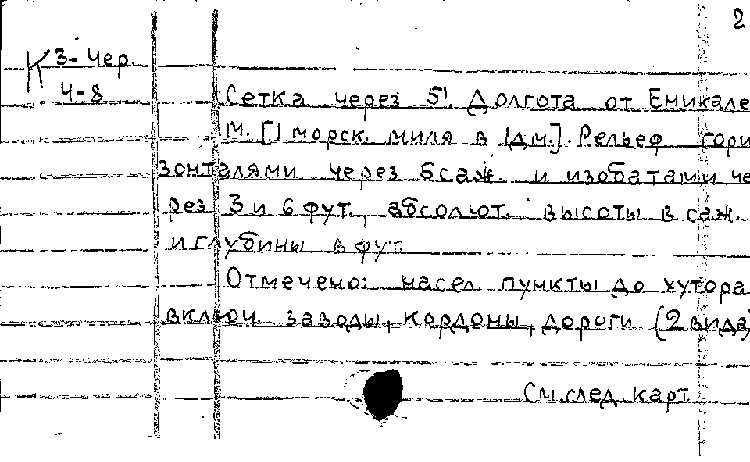 2
К 3-Чер
4-8
Сетка через 5'. Долгота от Еникале
М. [1 морск. миля в 1дм.]. Рельеф гори
зонталями через 6 саж. и изобатами че
рез 3 и 6 фут., абсолют. высоты в саж.
и глубины в фут.
Отмечено: насел. пункты до хутора
включ. заводы, кордоны, дороги (2 вида)
См. след. карт.